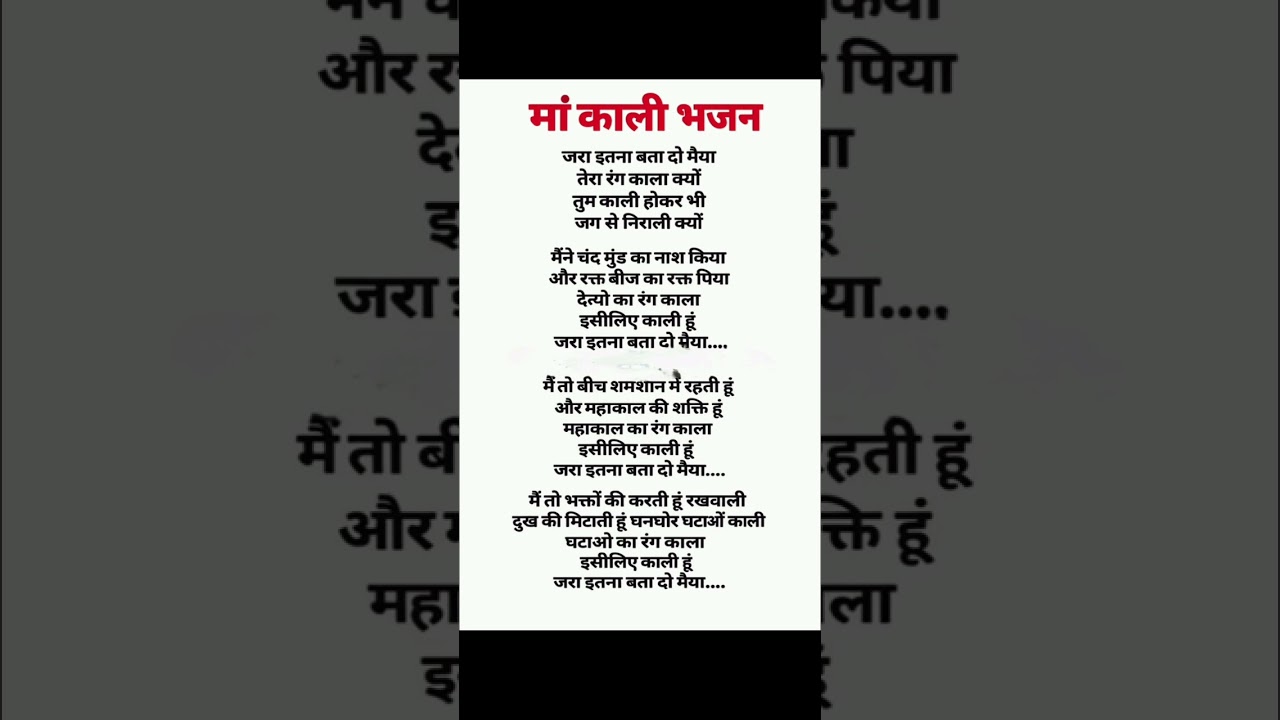 मां काली भजन
जरा इतना बता दो मैया
तेरा रंग काला क्यों
तुम काली होकर भी
जग से निराली क्यों
मैंने चंद मुंड का नाश किया
और रक्त बीज का रक्त पिया
देत्यो का रंग काला
इसीलिए काली हूं
जरा इतना बता दो मैया....
मैं तो बीच शमशान में रहती हूं
और महाकाल की शक्ति हूं
महाकाल का रंग काला
इसीलिए काली हूं
जरा इतना बता दो मैया....
मैं तो भक्तों की करती हूं रखवाली
दुख की मिटाती हूं घनघोर घटाओं काली
घटाओ का रंग काला
इसीलिए काली हूं
जरा इतना बता दो मैया....